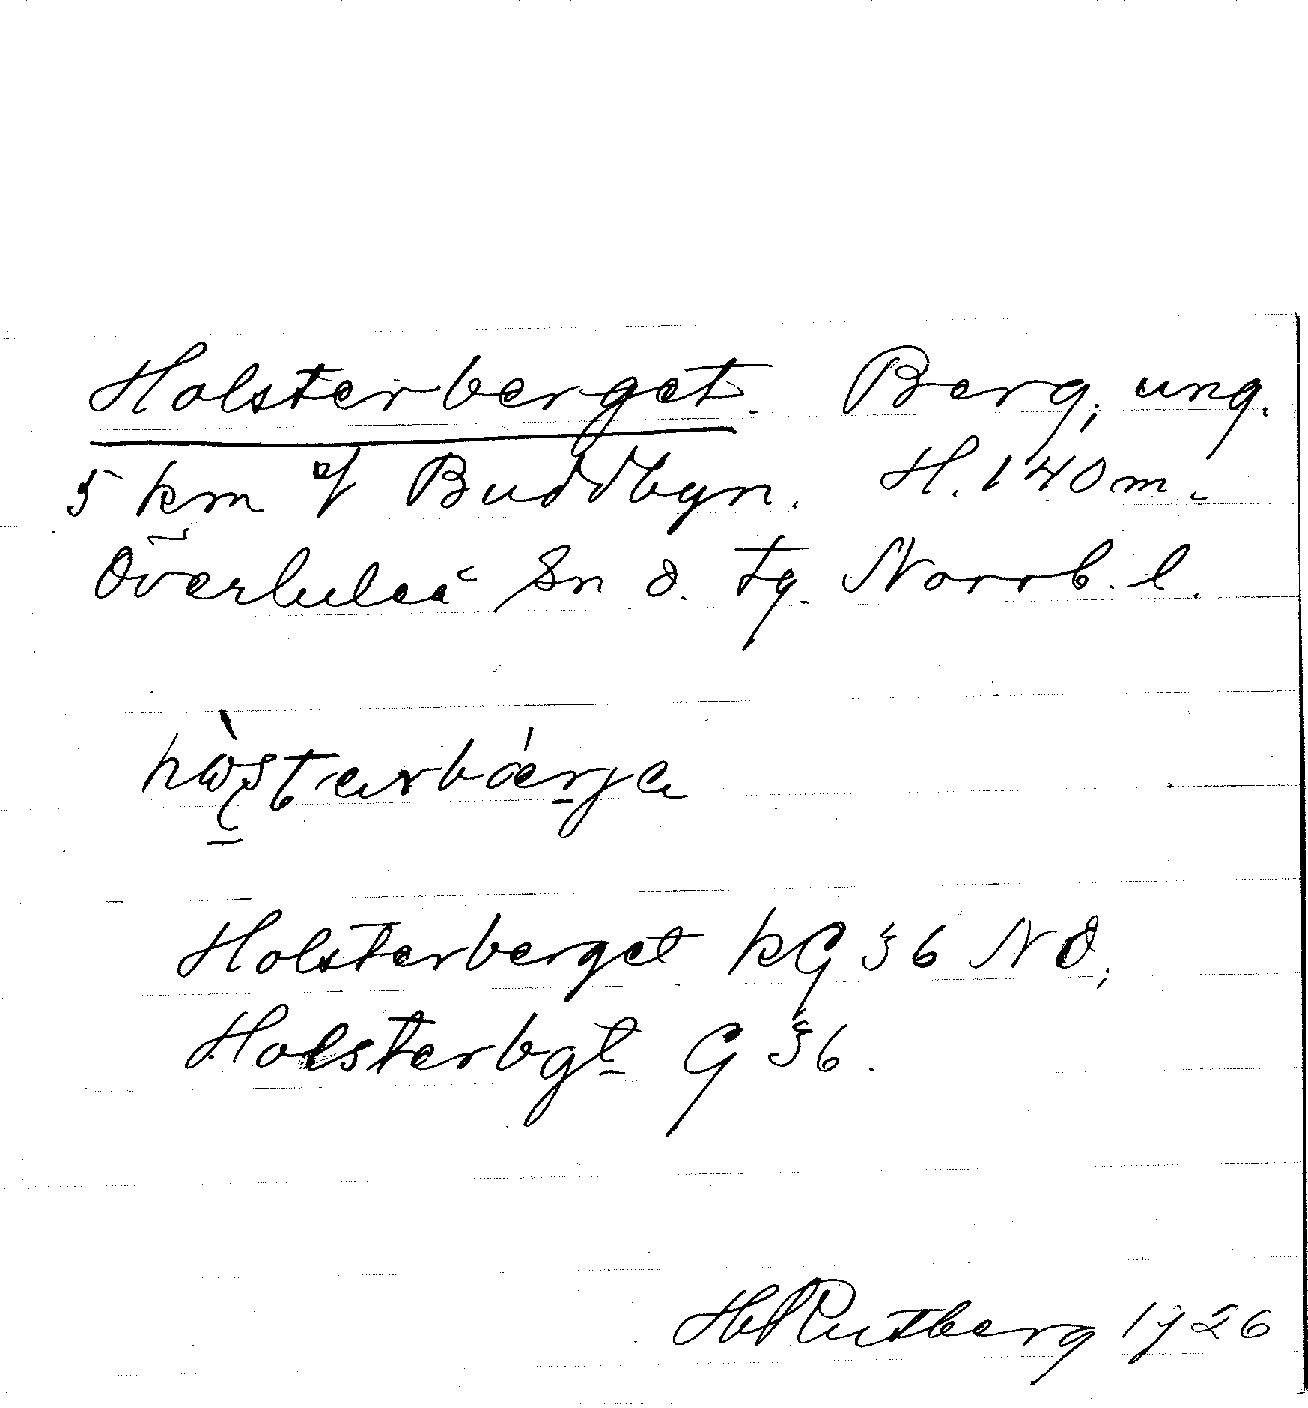 Holsterberget. Berg, ung.
5 km af Buddbyn. H. 140 m.
Överluleå Sn ö. tg. Norrb. l.
Holsterberget kG 36 NO;
Holsterbgt G 36.
H Rutberg 1926